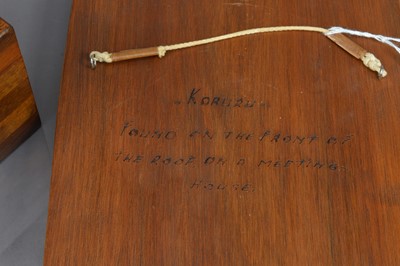 "KORURU"
FOUND ON THE FRONT OF
THE ROOF ON A MEETING
HOUSE